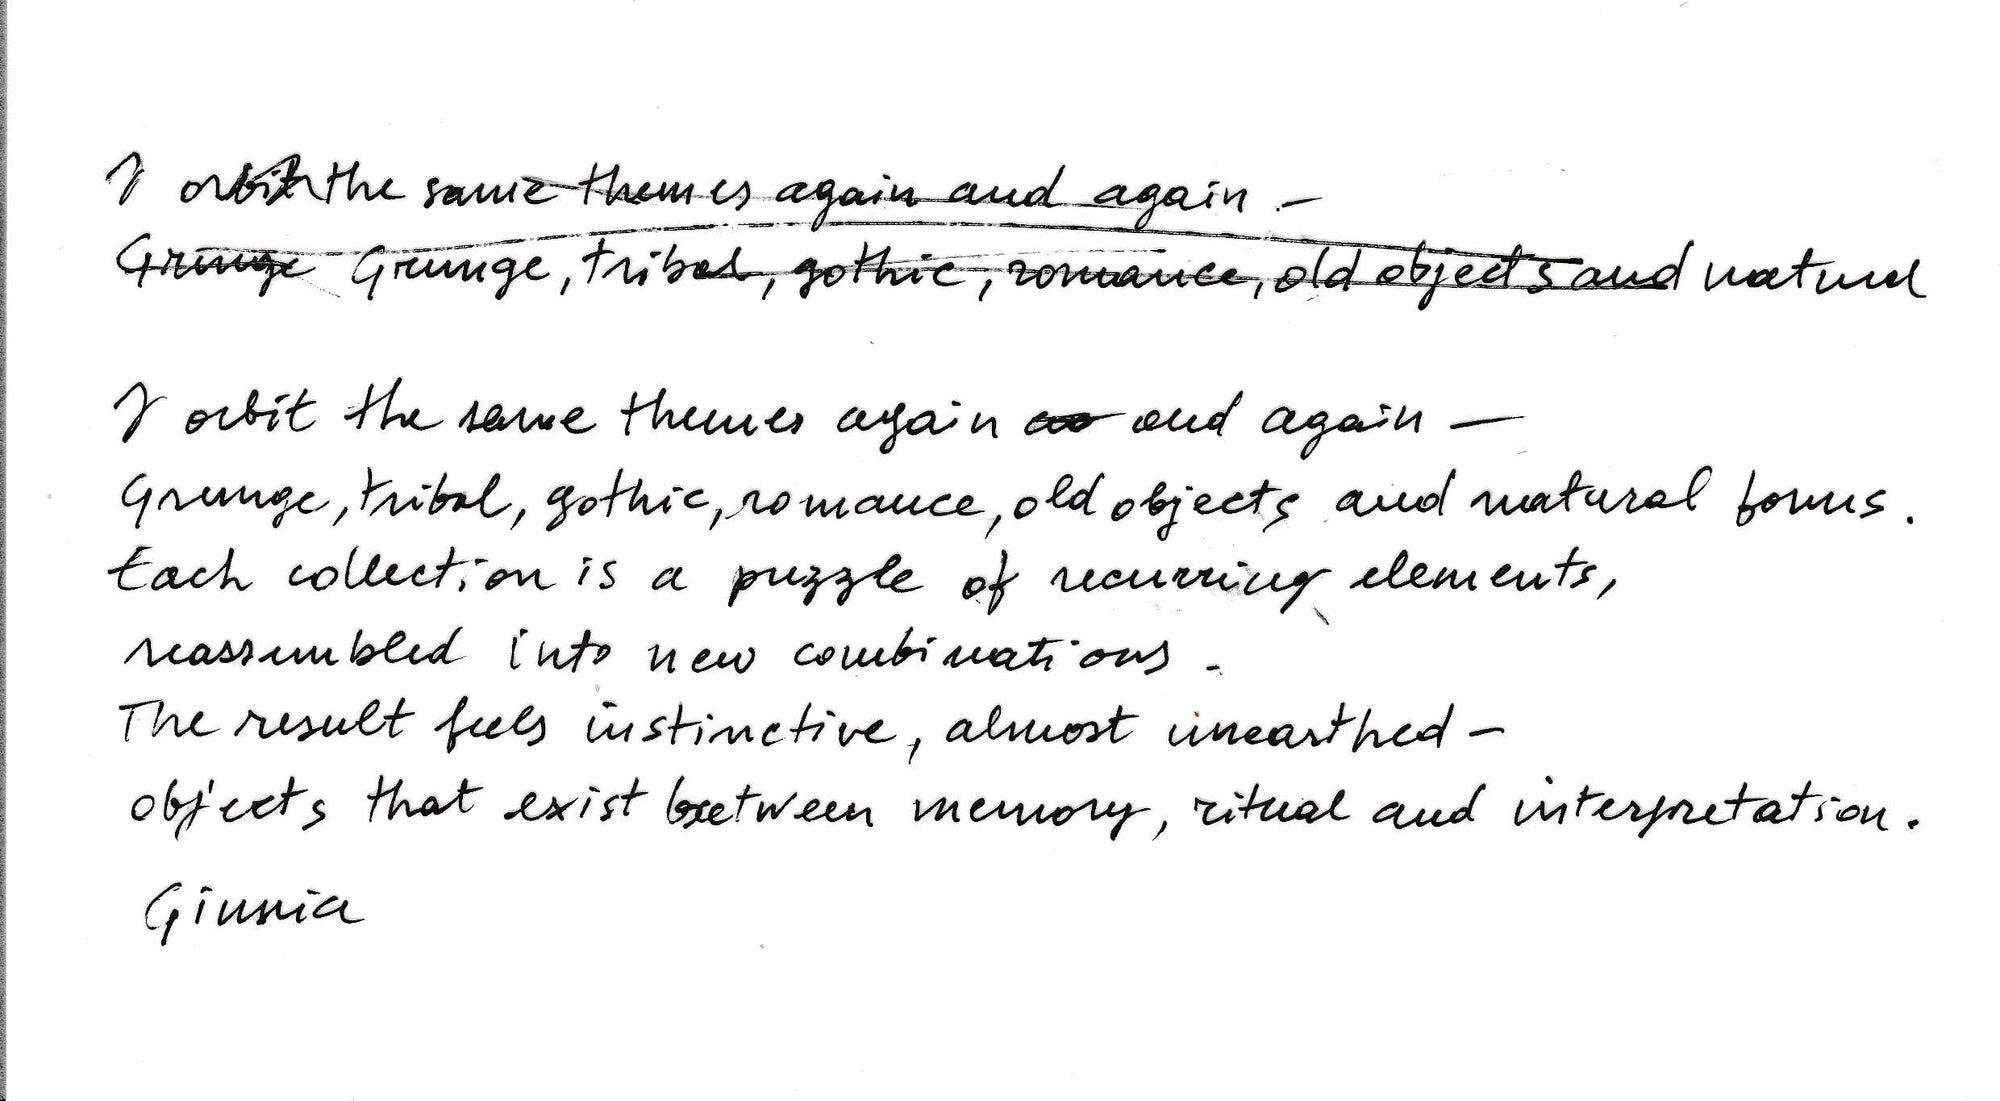 I orbit the same themes again and again -
Grunge Grunge, tribal, gothic, romance, old objects and natural
I orbit the same themes again and again —
Grunge, tribal, gothic, romance, old objects and natural forms.
Each collection is a puzzle of recurring elements,
reassembled into new combinations.
The result feels instinctive, almost unearthed -
objects that exist between memory, ritual and interpretation.